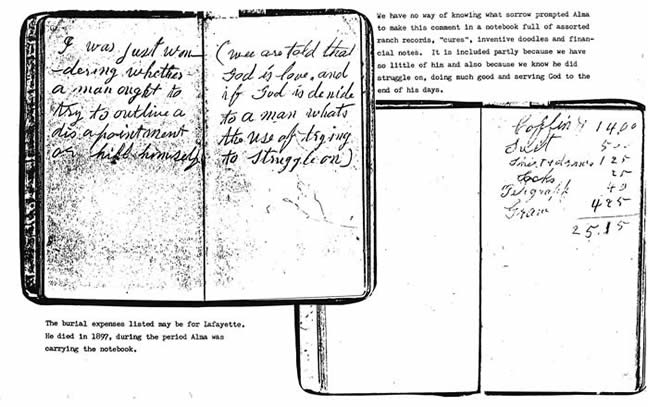 I was Just won
-dering whether
a man ought to
try to outlive a
disapointment
or kill himself
(we are told that
God is love, and
if God is denide
to a man whats
the use of trying
to struggle on)
We have no way of knowing what sorrow prompted Alma
to make this comment in a notebook full of assorted
ranch records, "cures", inventive doodles and finan-
cial notes. It is included partly because we have
so little of him and also because we know he did
struggle on, doing much good and serving God to the
end of his days.
Coffin 14.00
Suit 5.00
125
Socks 25
Telegraph 40
Grave 425
25.15
The burial expenses listed may be for Lafayette.
He died in 1897, during the period Alma was
carrying the notebook.